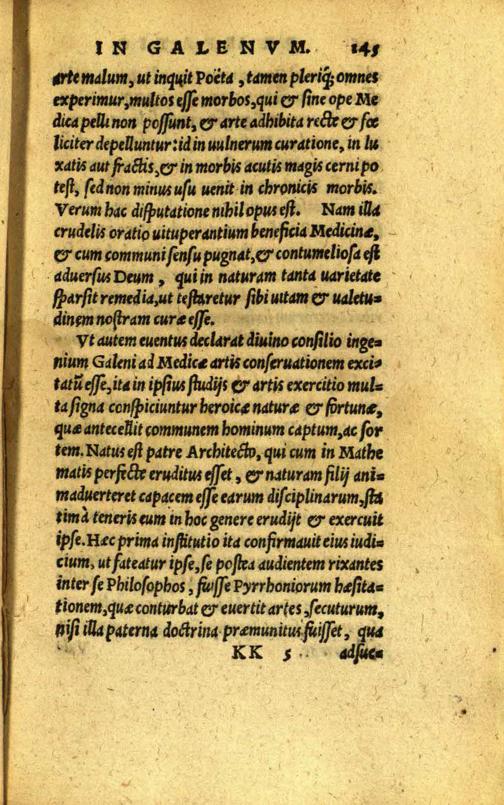 IN GALENVM. 145
arte malum, ut inquit Poëta, tamen pleriq́; omnes
experimur, multos esse morbos, qui & sine ope Me
dica pelli non possunt, & arte adhibita recte & fœ
liciter depelluntur: id in uulnerum curatione, in lu
xatis aut fractis, & in morbis acutis magis cerni po
test, sed non minus usu uenit in chronicis morbis.
Verum hac disputatione nihil opus est. Nam illa
crudelis oratio uituperantium beneficia Medicinæ,
& cum communi sensu pugnat, & contumeliosa est
aduersus Deum, qui in naturam tanta uarietate
sparsit remedia, ut testaretur sibi uitam & ualetu=
dinem nostram curæ esse.
Vt autem euentus declarat diuino consilio inge=
nium Galeni ad Medicæ artis conseruationem exci=
tatũ esse, ita in ipsius studijs & artis exercitio mul=
ta signa conspiciuntur heroicæ naturæ & fortunæ,
quæ antecellit communem hominum captum, ac sor
tem. Natus est patre Architecto, qui cum in Mathe
matis perfecte eruditus esset, & naturam filij ani=
maduerteret capacem esse earum disciplinarum, sta
tim à teneris eum in hoc genere erudijt & exercuit
ipse. Hæc prima institutio ita confirmauit eius iudi=
cium, ut fateatur ipse, se postea audientem rixantes
inter se Philosophos, fuisse Pyrrhoniorum hæsita=
tionem, quæ conturbat & euertit artes, secuturum,
nisi illa paterna doctrina præmunitus fuisset, qua
KK 5 adsue=